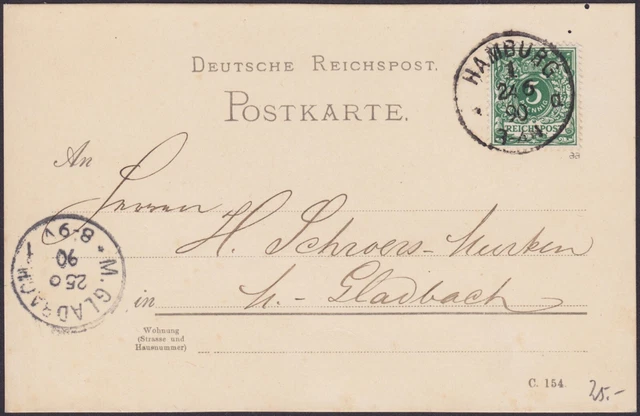 DEUTSCHE REICHSPOST.
POSTKARTE.
HAMBURG
1
24 6
90
d
5
REICHSPOST
aa
An
Herren
H. Schroers-Murken
in M.-Gladbach
M. GLADBACH
25
90
8-9V
Wohnung
(Strasse und
Hausnummer)
C. 154.
25.-